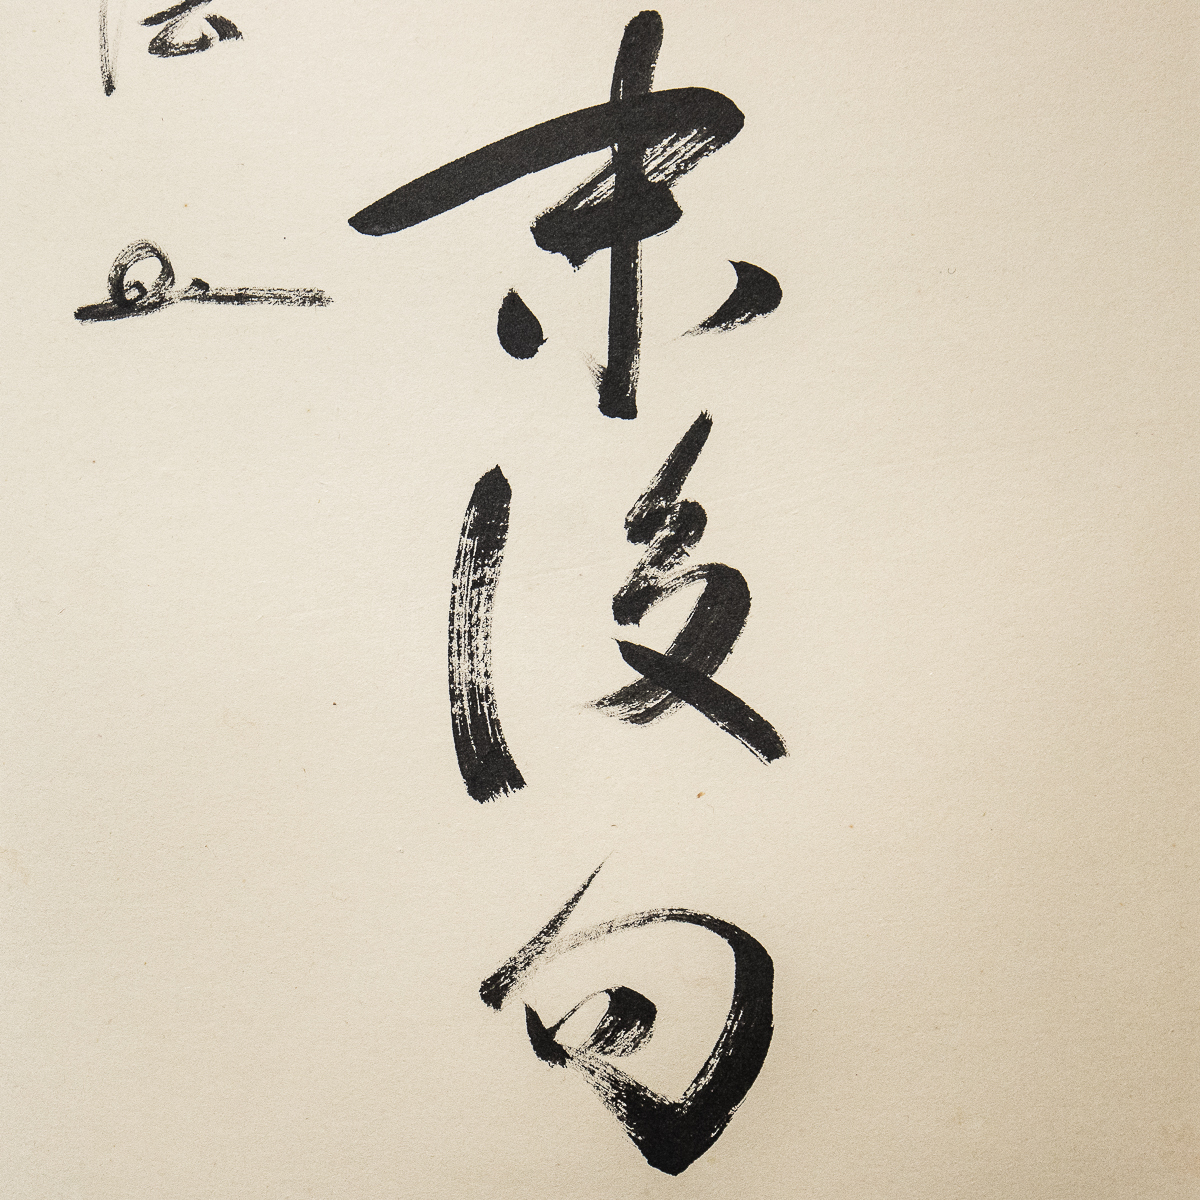 末後句